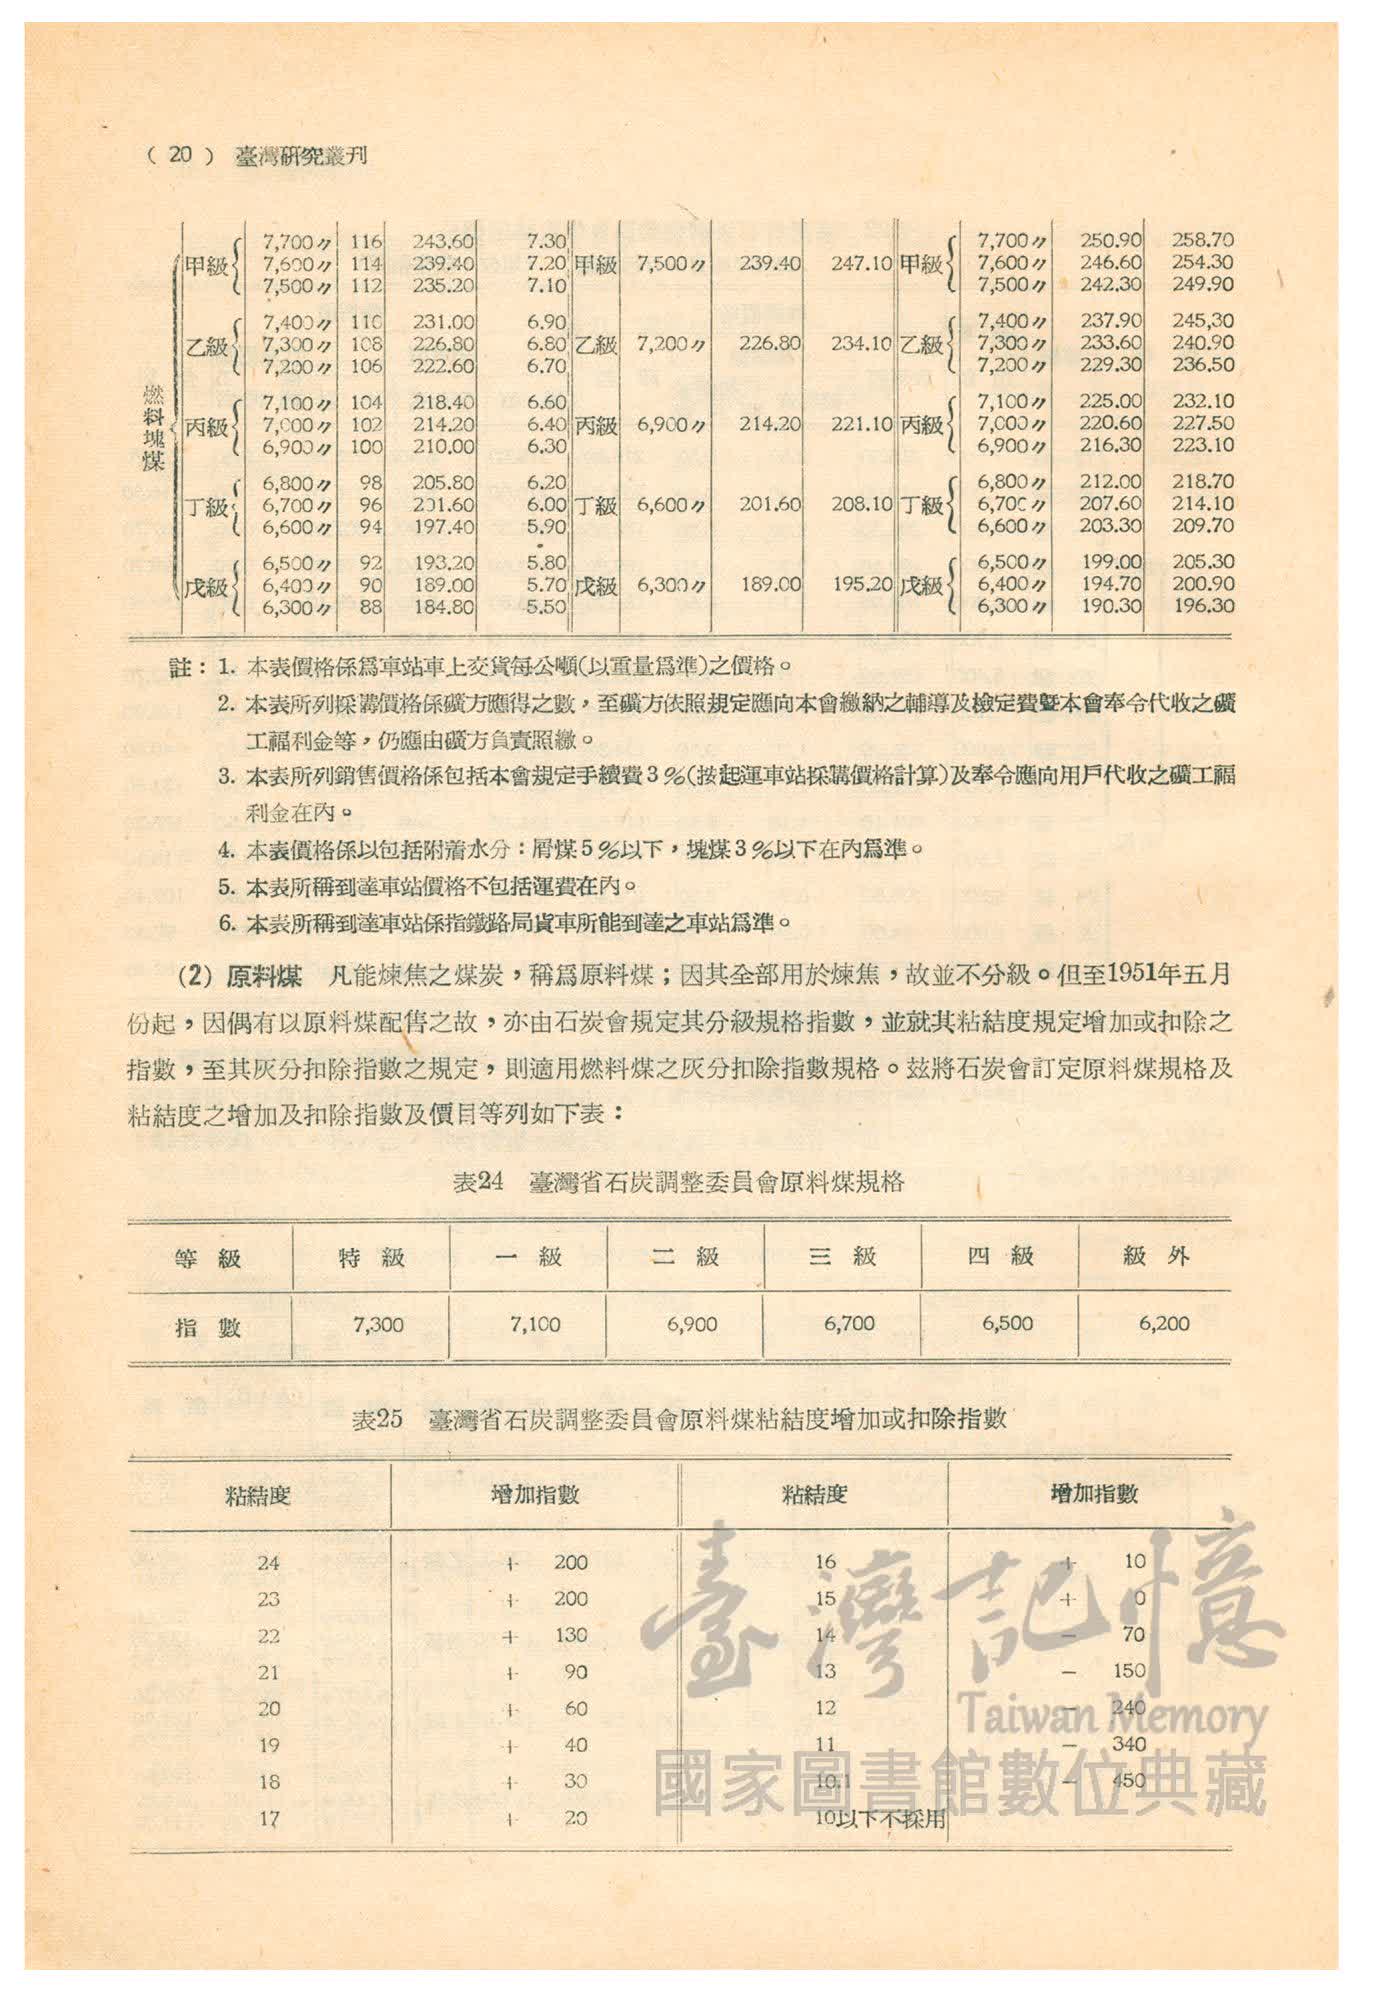 ( 20 ) 臺灣研究叢刊
燃料塊煤
甲級 7,700〃 116 243.60 7.30 7,700〃 250.90 258.70
7,600〃 114 239.40 7.20 甲級 7,500〃 239.40 247.10 甲級 7,600〃 246.60 254.30
7,500〃 112 235.20 7.10 7,500〃 242.30 249.90
乙級 7,400〃 110 231.00 6.90 7,400〃 237.90 245,30
7,300〃 108 226.80 6.80 乙級 7,200〃 226.80 234.10 乙級 7,300〃 233.60 240.90
7,200〃 106 222.60 6.70 7,200〃 229.30 236.50
丙級 7,100〃 104 218.40 6.60 7,100〃 225.00 232.10
7,000〃 102 214.20 6.40 丙級 6,900〃 214.20 221.10 丙級 7,000〃 220.60 227.50
6,900〃 100 210.00 6.30 6,900〃 216.30 223.10
丁級 6,800〃 98 205.80 6.20 6,800〃 212.00 218.70
6,700〃 96 201.60 6.00 丁級 6,600〃 201.60 208.10 丁級 6,700〃 207.60 214.10
6,600〃 94 197.40 5.90 6,600〃 203.30 209.70
戊級 6,500〃 92 193.20 5.80 6,500〃 199.00 205.30
6,400〃 90 189.00 5.70 戊級 6,300〃 189.00 195.20 戊級 6,400〃 194.70 200.90
6,300〃 88 184.80 5.50 6,300〃 190.30 196.30
註：1. 本表價格係爲車站車上交貨每公噸(以重量爲準)之價格。
2. 本表所列採購價格係礦方應得之數，至礦方依照規定應向本會繳納之輔導及檢定費暨本會奉令代收之礦
工福利金等，仍應由礦方負責照繳。
3. 本表所列銷售價格係包括本會規定手續費3%(按起運車站採購價格計算)及奉令應向用戶代收之礦工福
利金在內。
4. 本表價格係以包括附着水分：屑煤5%以下，塊煤3%以下在內爲準。
5. 本表所稱到達車站價格不包括運費在內。
6. 本表所稱到達車站係指鐵路局貨車所能到達之車站爲準。
(2) 原料煤 凡能煉焦之煤炭，稱爲原料煤；因其全部用於煉焦，故並不分級。但至1951年五月
份起，因偶有以原料煤配售之故，亦由石炭會規定其分級規格指數，並就其粘結度規定增加或扣除之
指數，至其灰分扣除指數之規定，則適用燃料煤之灰分扣除指數規格。玆將石炭會訂定原料煤規格及
粘結度之增加及扣除指數及價目等列如下表：
表24 臺灣省石炭調整委員會原料煤規格
等級 特級 一級 二級 三級 四級 級外
指數 7,300 7,100 6,900 6,700 6,500 6,200
表25 臺灣省石炭調整委員會原料煤粘結度增加或扣除指數
粘結度 增加指數 粘結度 增加指數
24 + 200 16 + 10
23 + 200 15 + 0
22 + 130 14 - 70
21 + 90 13 - 150
20 + 60 12 - 240
19 + 40 11 - 340
18 + 30 10.1 - 450
17 + 20 10以下不採用
臺灣記憶
Taiwan Memory
國家圖書館數位典藏